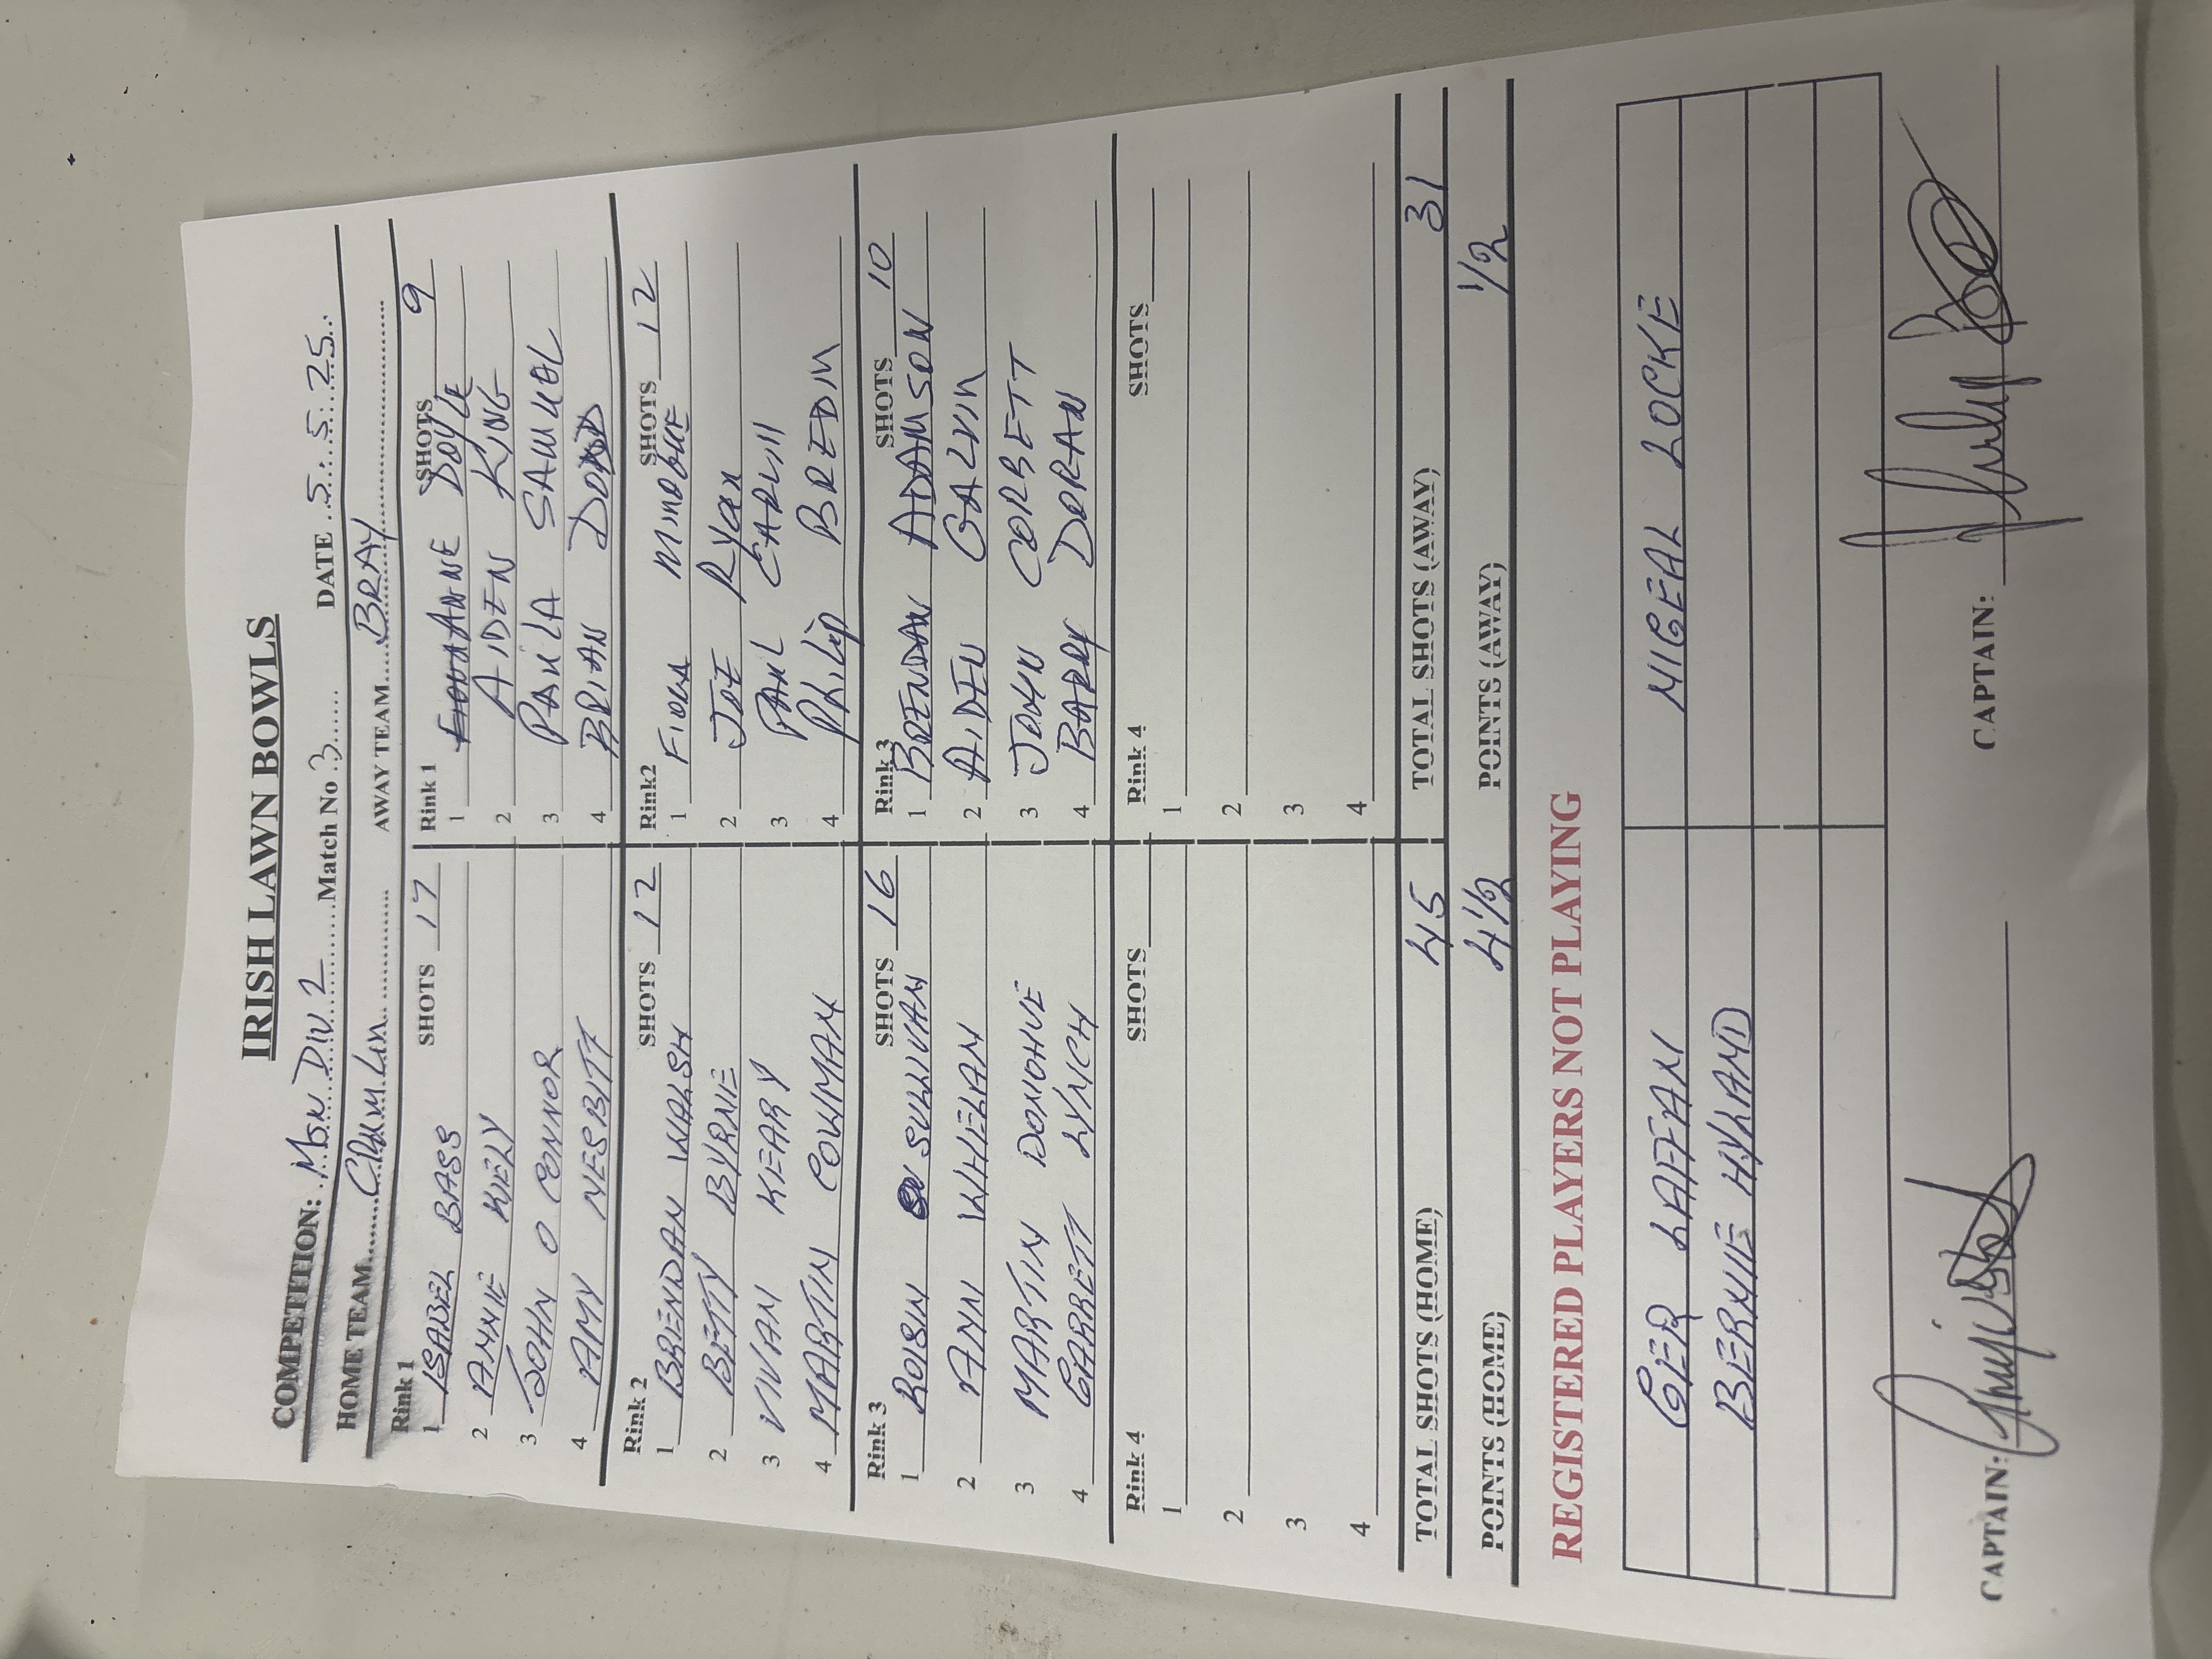 IRISH LAWN BOWLS
COMPETITION: Mon Div 2 Match No 3 DATE 5.5.25.
HOME TEAM AWAY TEAM BRAY
Rink 1 SHOTS 17 Rink 1 SHOTS 9
1 ISABEL BASS 1 ANNE DOYLE
2 ANNIE KIELY 2 AIDEN KING
3 JOHN O CONNOR 3 PAULA SAMUEL
4 AMY NESBITT 4 BRIAN
Rink 2 SHOTS 12 Rink2 SHOTS 12
1 BRENDAN WALSH 1 FIONA MINOGUE
2 BETTY BYRNE 2 JOE Ryan
3 VIVAN KEARY 3 PAUL CARVILL
4 MARTIN COWMAN 4 Philip BREDIN
Rink 3 SHOTS 16 Rink 3 SHOTS 10
1 ROISIN SULLIVAN 1 BRENDAN ADAMSON
2 ANN WHELAN 2 AIDEN GALVIN
3 MARTIN DONOHUE 3 JOHN CORBETT
4 GARRETT LYNCH 4 BARRY DORAN
Rink 4 SHOTS Rink 4 SHOTS
1 1
2 2
3 3
4 4
TOTAL SHOTS (HOME) 45 TOTAL SHOTS (AWAY) 31
POINTS (HOME) 4 1/2 POINTS (AWAY) 1/2
REGISTERED PLAYERS NOT PLAYING
GER LAFFAN NIGEAL LOCKE
BERNIE HYLAND
CAPTAIN: CAPTAIN: